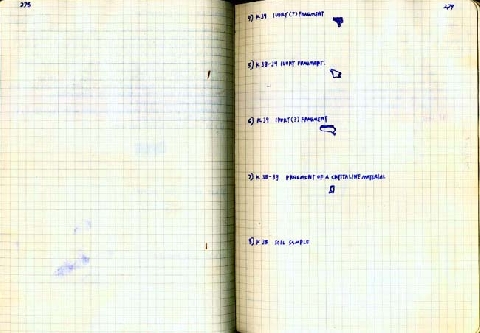 275
4) K.39 IVORY (?) FRAGMENT
5) K.38-39 IVORY FRAGMENT.
6) K.39 IVORY (?) FRAGMENT
7) K.38-39 FRAGMENT OF A CRYSTALLINE MATERIAL
K.38 SOIL SAMPLE